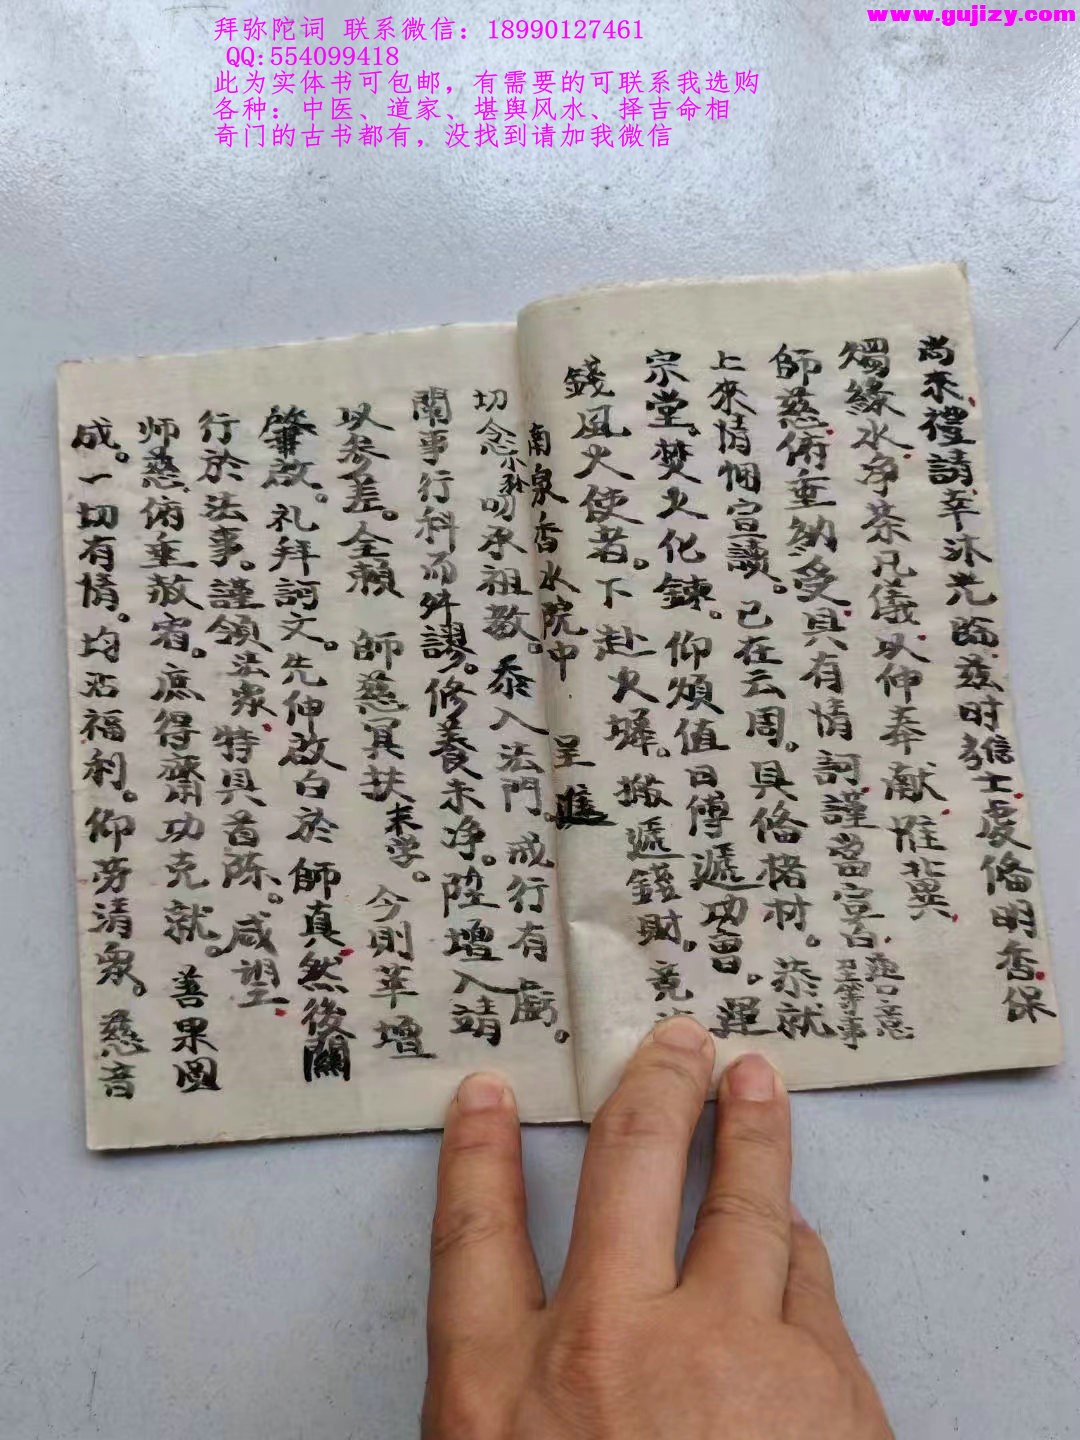 www.gujizy.com
拜弥陀词 联系微信：18990127461
QQ:554099418
此为实体书可包邮，有需要的可联系我选购
各种：中医、道家、堪舆风水、择吉命相
奇门的古书都有，没找到请加我微信
尚来禮請幸沐光臨兹时信士虔俻明香保
燭緣水净茶凡儀以伸奉献惟冀
師慈俯垂納受具有情詞謹當宣白意
至等事
上來情悃宣讀。已在云周。具俻楮材。恭就
宗堂。焚火化鍊。仰煩值日傅遞功曹。運
錢風火使者。下赴火墿。搬遞錢財。竟
南泉香水院中 呈進
切念小孫叨承祖教。忝入法門。戒行有虧。
闌事行科而舛謬。修養未净。陞壇入靖
以参差。全賴 師慈冥扶末学。今則莘壇
肇啟。礼拜詞文。先伸啟白於師真然後關
行於法事。謹領法眾特具首陈。咸望
师慈俯垂赦宥。庶得齋功克就。善果圆
成。一切有情。均沾福利。仰劳清眾。慈音